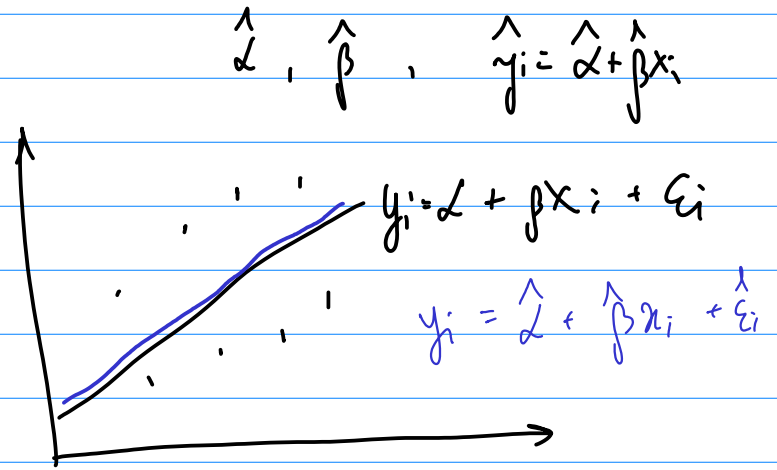 α̂ , β̂ , ŷᵢ = α̂ + β̂xᵢ
yᵢ = α + βxᵢ + εᵢ
yᵢ = α̂ + β̂xᵢ + ε̂ᵢ